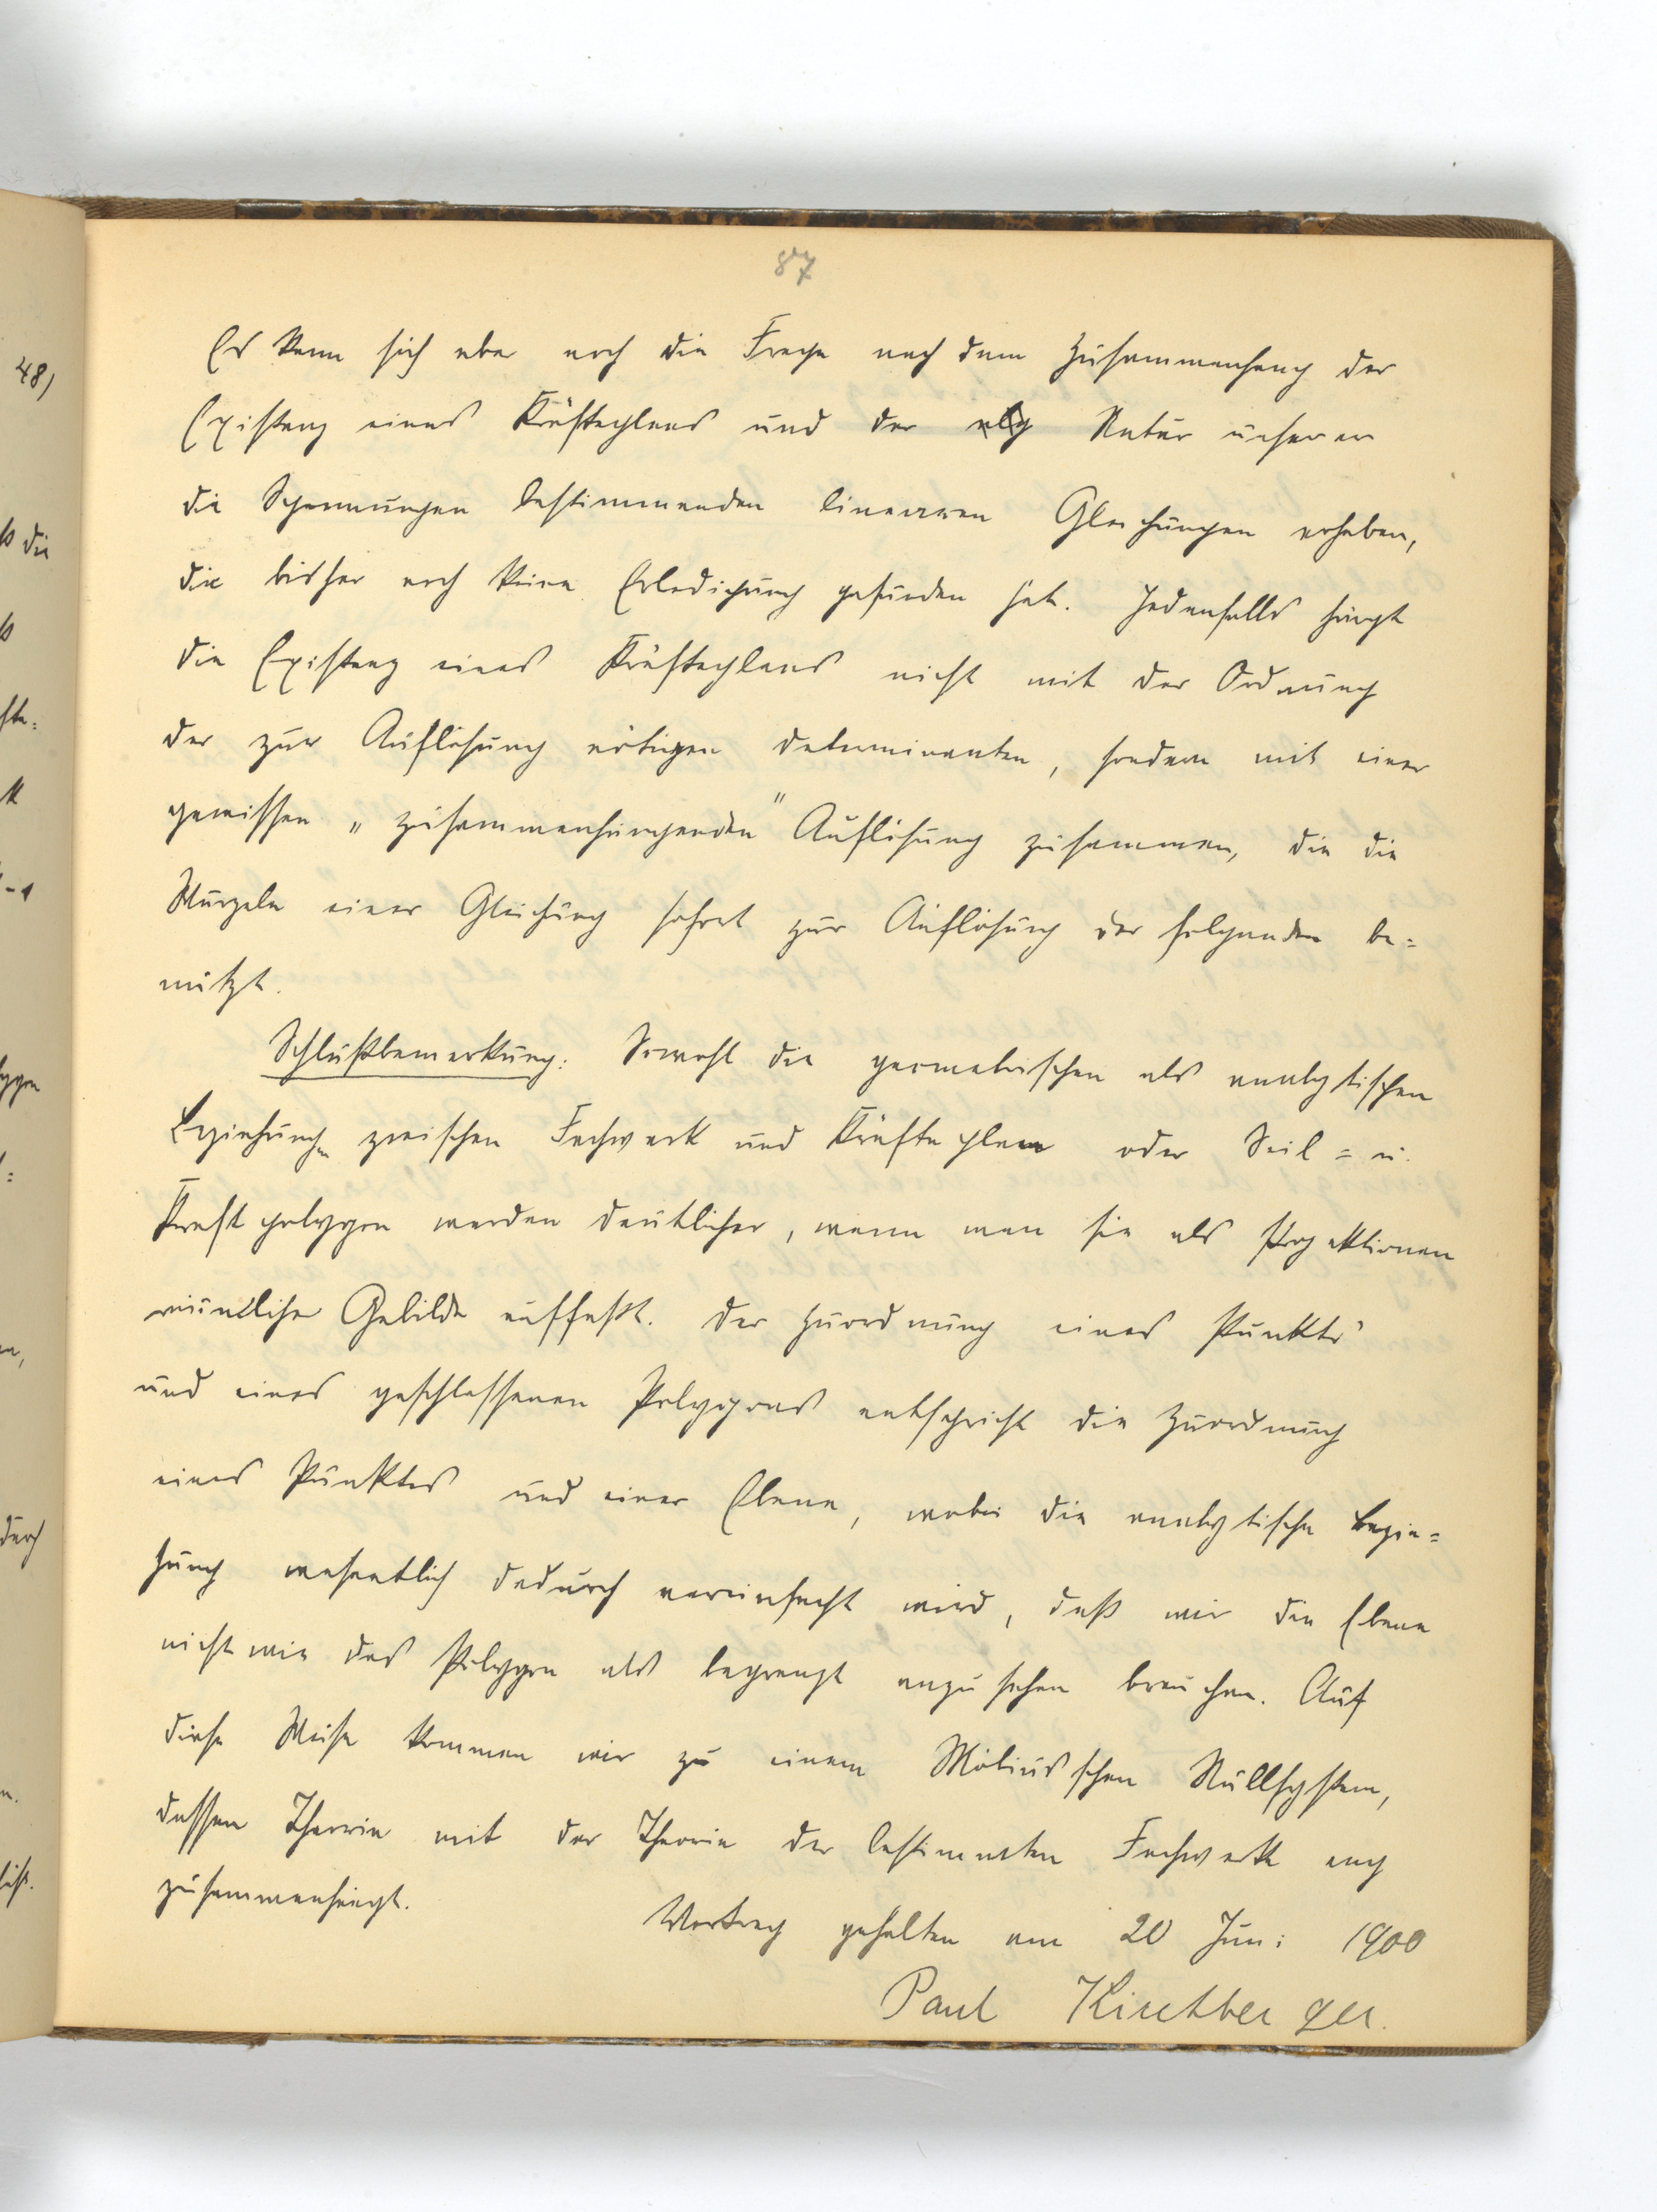 87
Es kann sich aber noch die Frage nach dem Zusammenhang der
Existenz eines Kräfteplans und der alg Natur unserer
die Spannungen bestimmenden linearen Gleichungen erheben,
die bisher noch keine Erledigung gefunden hat. Jedenfalls hängt
die Existenz eines Kräfteplans nicht mit der Ordnung
der zur Auflösung nötigen Determinanten, sondern mit einer
gewissen „zusammenhängenden" Auflösung zusammen, die die
Wurzeln einer Gleichung sofort zur Auflösung der folgenden be=
nützt.
Schlußbemerkung: Sowohl die geometrischen als analytischen
Beziehungen zwischen Fachwerk und Kräfteplan oder Seil= u.
Kraftpolygon werden deutlicher, wenn man sie als Projektionen
räumlicher Gebilde auffaßt. Der Zuordnung eines Punkts
und eines geschlossenen Polygons entspricht die Zuordnung
eines Punktes und einer Ebene, wobei die analytische Bezie=
hung wesentlich dadurch vereinfacht wird, daß wir die Ebene
nicht wie das Polygon als begrenzt anzusehen brauchen. Auf
diese Weise kommen wir zu einem Möbiusschen Nullsystem,
dessen Theorie mit der Theorie der bestimmten Fachwerke eng
zusammenhängt.
Vortrag gehalten am 20 Juni 1900
Paul Kirchberger.
48)
die
durch